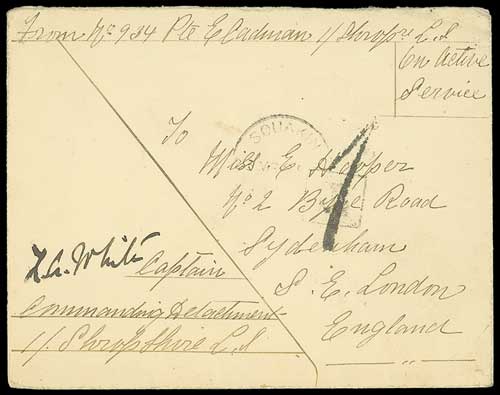 From No 934 Pte E Cadman 1/ Shrops L.I
On Active
Service
SOUAKIN
To
Miss E Hooper
No 2 Byne Road
Sydenham
S. E. London
England
1
White Captain
Commanding Detachment
1/ Shropshire L.I